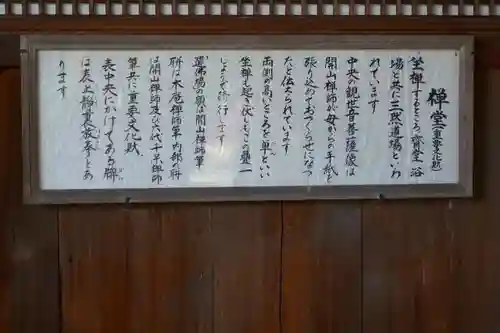 禅堂(重要文化財)
坐禅するところ 食堂 浴
場と共に三黙道場といわ
れています
中央の観世音菩薩像は
開山禅師が母からの手紙を
張り込めておつくらせになっ
たと伝えられています
両側の高いところを単といい
坐禅も起き伏しもこの畳一
じょうで修行します
選佛場の額は開山禅師筆
聯は木庵禅師筆 内部の聯
は開山禅師及び六代千呆禅師
筆共に重要文化財
表中央にかけてある牌
は表上幹重放参とあ
ります